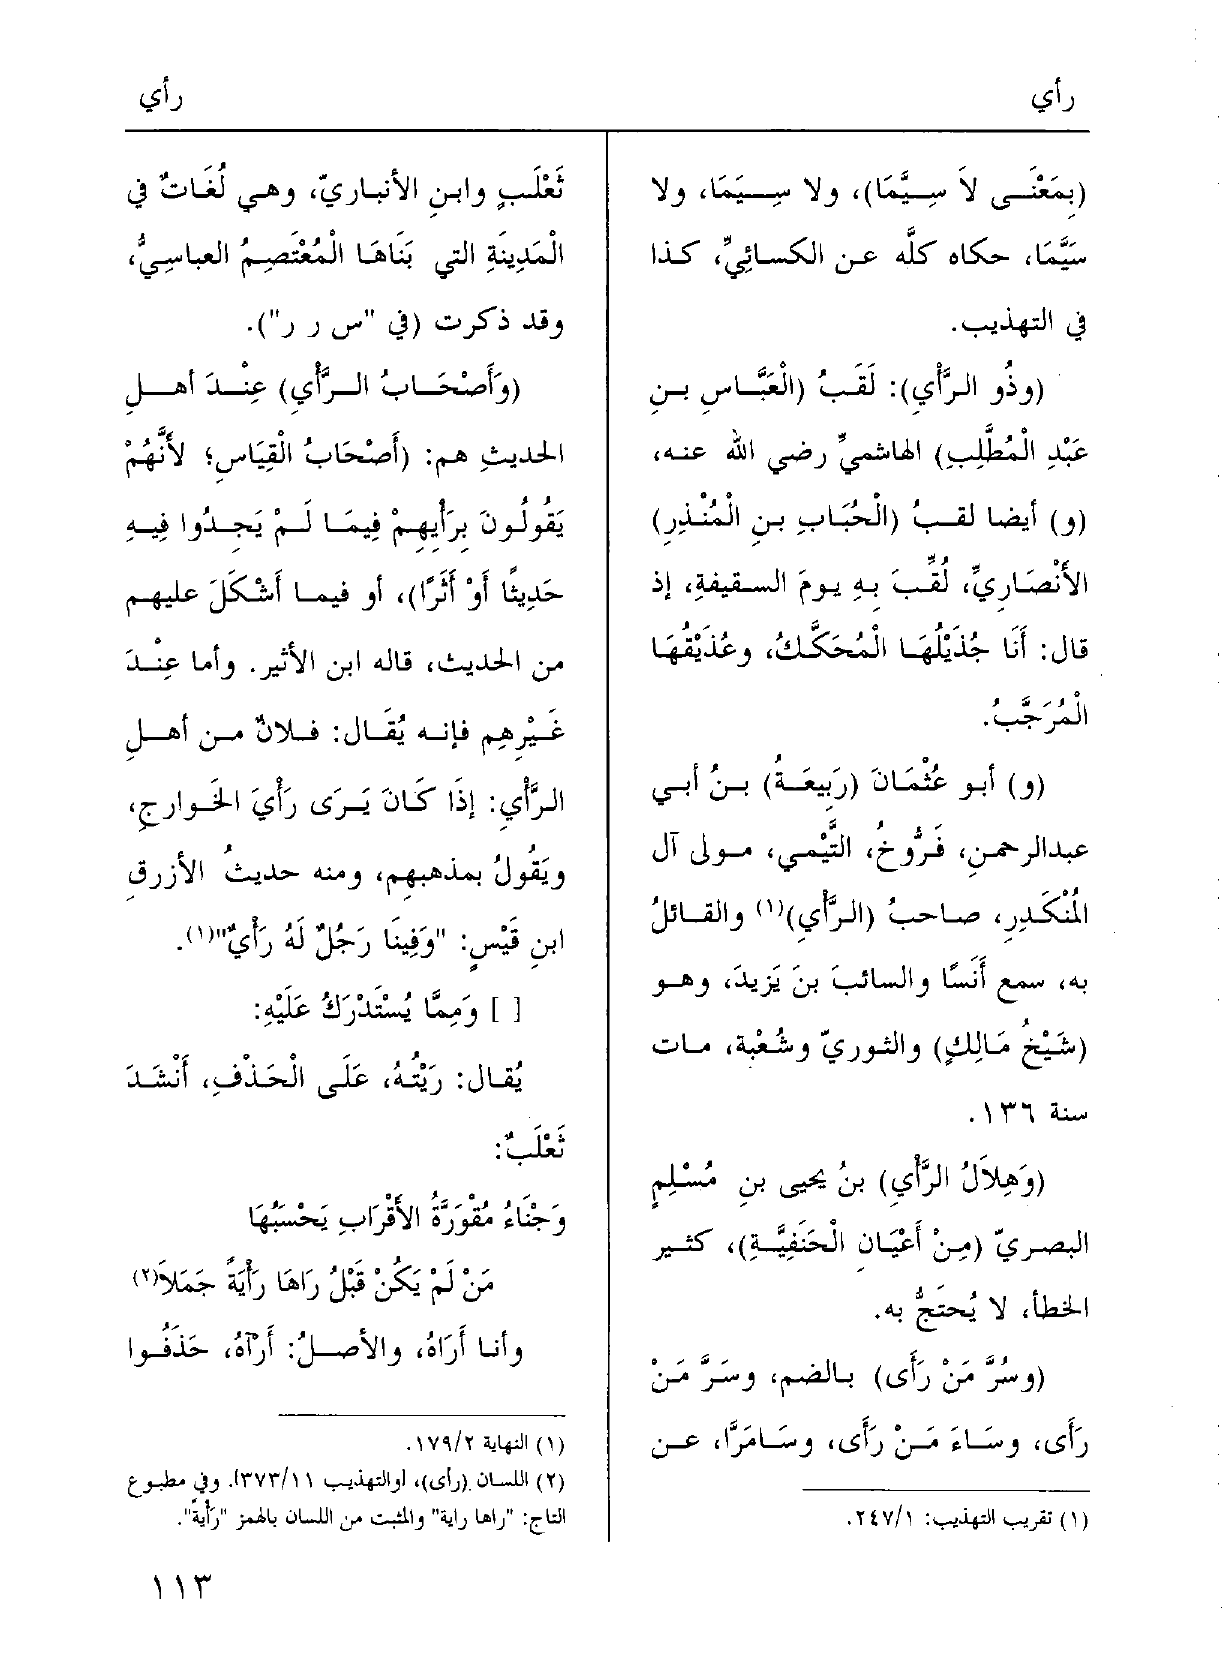 رأي
رأي
(بِمَعْنَى لاَ سِيَّمَا)، ولا سِيَمَا، ولا
سَيَّمَا، حكاه كلَّه عن الكسائيِّ، كذا
في التهذيب.
(وذُو الرَّأْيِ): لَقَبُ (الْعَبَّاسِ بنِ
عَبْدِ الْمُطَّلِبِ) الهاشميِّ رضي الله عنه،
(و) أيضا لقبُ (الْحُبَابِ بنِ الْمُنْذِرِ)
الأَنْصَارِيِّ، لُقِّبَ بِهِ يومَ السقيفةِ، إذ
قال: أَنَا جُذَيْلُهَا الْمُحَكَّكُ، وعُذَيْقُهَا
الْمُرَجَّبُ.
(و) أبو عُثْمَانَ (رَبِيعَةُ) بنُ أبي
عبدالرحمنِ، فَرُّوخُ، التَّيْمي، مولى آل
المُنْكَدِرِ، صاحبُ (الرَّأْيِ)(١) والقائلُ
به، سمع أَنَسًا والسائبَ بنَ يَزِيدَ، وهو
(شَيْخُ مَالِكٍ) والثوريِّ وشُعْبة، مات
سنة ١٣٦.
(وَهِلاَلُ الرَّأْيِ) بنُ يحيى بنِ مُسْلِمٍ
البصريّ (مِنْ أَعْيَانِ الْحَنَفِيَّةِ)، كثير
الخطأ، لا يُحتَجُّ به.
(وسُرَّ مَنْ رَأَى) بالضم، وسَرَّ مَنْ
رَأَى، وسَاءَ مَنْ رَأَى، وسَامَرَّا، عن
(١) تقريب التهذيب: ٢٤٧/١.
ثَعْلَبٍ وابنِ الأنباريّ، وهي لُغَاتٌ في
الْمَدِينَةِ التي بَنَاهَا الْمُعْتَصِمُ العباسيُّ،
وقد ذكرت (في "س ر ر").
(وَأَصْحَابُ الرَّأْيِ) عِنْدَ أهلِ
الحديثِ هم: (أَصْحَابُ الْقِيَاسِ؛ لأَنَّهُمْ
يَقُولُونَ بِرَأْيِهِمْ فِيمَا لَمْ يَجِدُوا فِيهِ
حَدِيثًا أَوْ أَثَرًا)، أو فيما أَشْكَلَ عليهم
من الحديث، قاله ابن الأثير. وأما عِنْدَ
غَيْرِهِم فإنه يُقَال: فلانٌ من أهلِ
الرَّأْيِ: إِذَا كَانَ يَرَى رَأْيَ الخوارجِ،
ويَقُولُ بمذهبهم، ومنه حديثُ الأزرقِ
ابنِ قَيْسٍ: "وَفِينَا رَجُلٌ لَهُ رَأْيٌ"(١).
[ ] وَمِمَّا يُسْتَدْرَكُ عَلَيْهِ:
يُقال: رَيْتُهُ، عَلَى الْحَذْفِ، أَنْشَدَ
ثَعْلَبٌ:
وَجْنَاءُ مُقْوَرَّةُ الأَقْرَابِ يَحْسَبُهَا
مَنْ لَمْ يَكُنْ قَبْلُ رَاهَا رَأْيَةً جَمَلاَ(٢)
وأنا أَرَاهُ، والأصلُ: أَرْآهُ، حَذَفُوا
(١) النهاية ١٧٩/٢.
(٢) اللسان (رأى)، [والتهذيب ٣٧٣/١١]. وفي مطبوع
التاج: "راها راية" والمثبت من اللسان بالهمز "رَأْيَةً".
١١٣